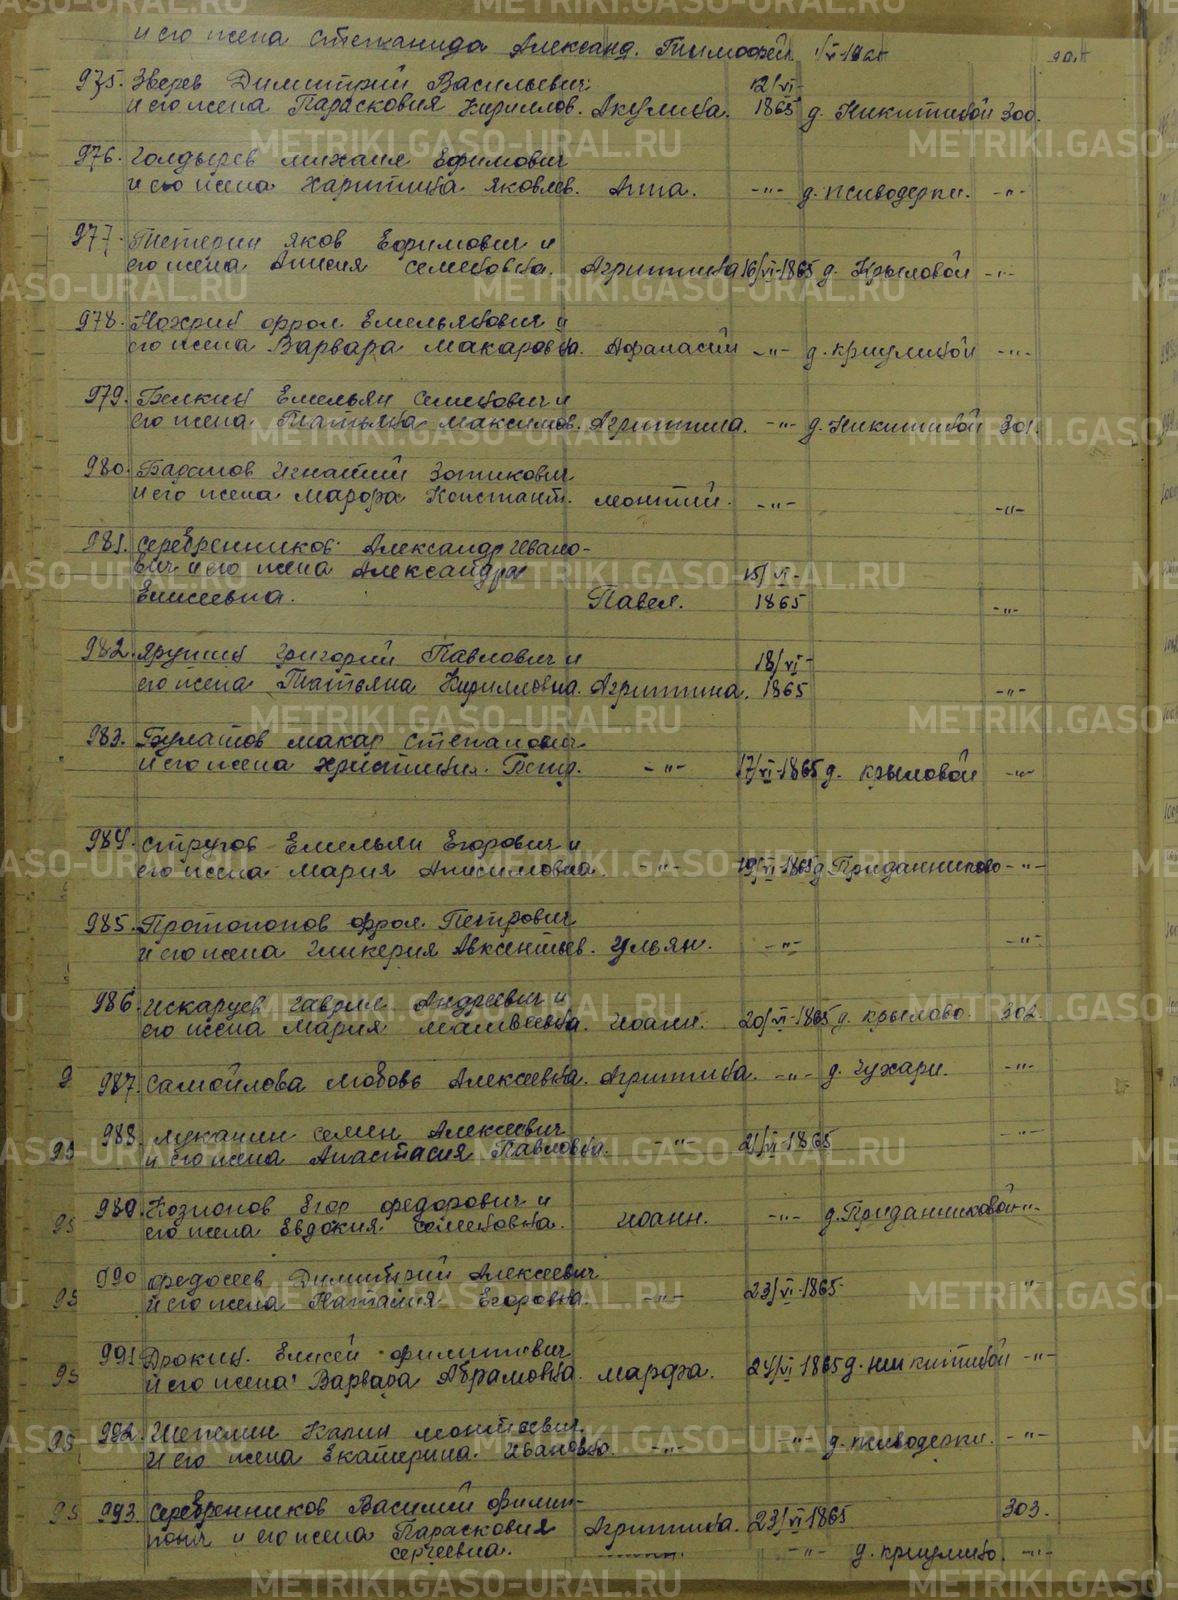 и его жена Степанида Александ. Тимофей 90.π
975. Зверев Димитрий Васильевич 12/VI-
и его жена Парасковия Кириллов. Акулина. 1865 д. Никитиной 300.
976. Голдырев Михаил Ефимович
и его жена Харитина Яковлев. Анна. -"- д. Живодерки. -"-
977. Тетерин Яков Ефимович и
его жена Анисия Семеновна. Агриппина 16/VI-1865 д. Крыловой -"-
978. Нохрин Фрол Емельянович и
его жена Варвара Макаровна. Афанасий -"- д. Криулиной -"-
979. Белкин Емельян Семенович и
его жена Татьяна Максимов. Агриппина. -"- д. Никитиной 301.
980. Игнатий Зотикович
и его жена Марфа Констант. Монтий. -"- -"-
981. Серебренников Александр Ивано-
вич и его жена Александра 15/VI-
Елисеевна. Павел. 1865 -"-
982. Ярушин Григорий Павлович и 18/VI-
его жена Татьяна Кирилловна. Агриппина. 1865 -"-
983. Булатов Макар Степанович
и его жена Христиния. Петр. -"- 17/VI-1865 д. Крыловой -"-
984. Стругов Емельян Егорович и
его жена Мария Анисимовна. -"- 19/VI-1865 д. Приданниково -"-
985. Протопопов Фрол Петрович
и его жена Гликерия Авксентьев. Ульян. -"- -"-
986. Искаруев Гаврил Андреевич и
его жена Мария Матвеевна. Иоанн. 20/VI-1865 д. Крылово. 302.
9 987. Самойлова Любовь Алексеевна. Агриппина. -"- д. Чухари. -"-
988. Луканин Семен Алексеевич
и его жена Анастасия Павловна. -"- 21/VI-1865 -"-
989. Козионов Егор Федорович и
его жена Евдокия Семеновна. Иоанн. -"- д. Приданниковой -"-
990 Федосеев Димитрий Алексеевич
и его жена Наталия Егоровна. -"- 23/VI-1865 -"-
991. Дрокин. Елисей Филиппович
и его жена Варвара Абрамовна. Марфа. 24/VI 1865 д. Никитиной -"-
992. Шепелин Калин Монтиевич
и его жена Екатерина Ивановна. -"- -"- д. Живодерки. -"-
993. Серебренников Василий Филип-
пович и его жена Парасковия Агриппина. 23/VI 1865 303.
Сергеевна. -"- д. Криулино. -"-
METRIKI.GASO-URAL.RU